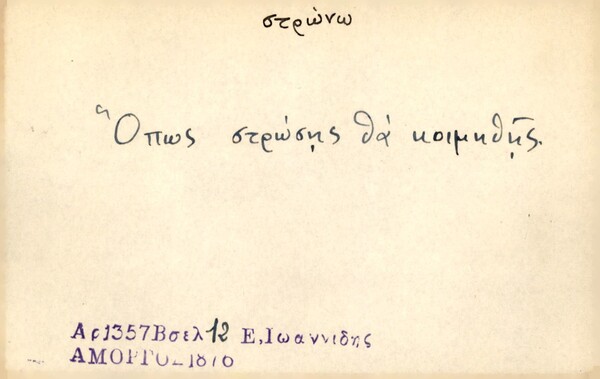 στρώνω
Ὅπως στρώσῃς θά κοιμηθῇς.
Αρ1357Βσελ 12 Ε,Ιωαννιδης
ΑΜΟΡΓΟΣ1876